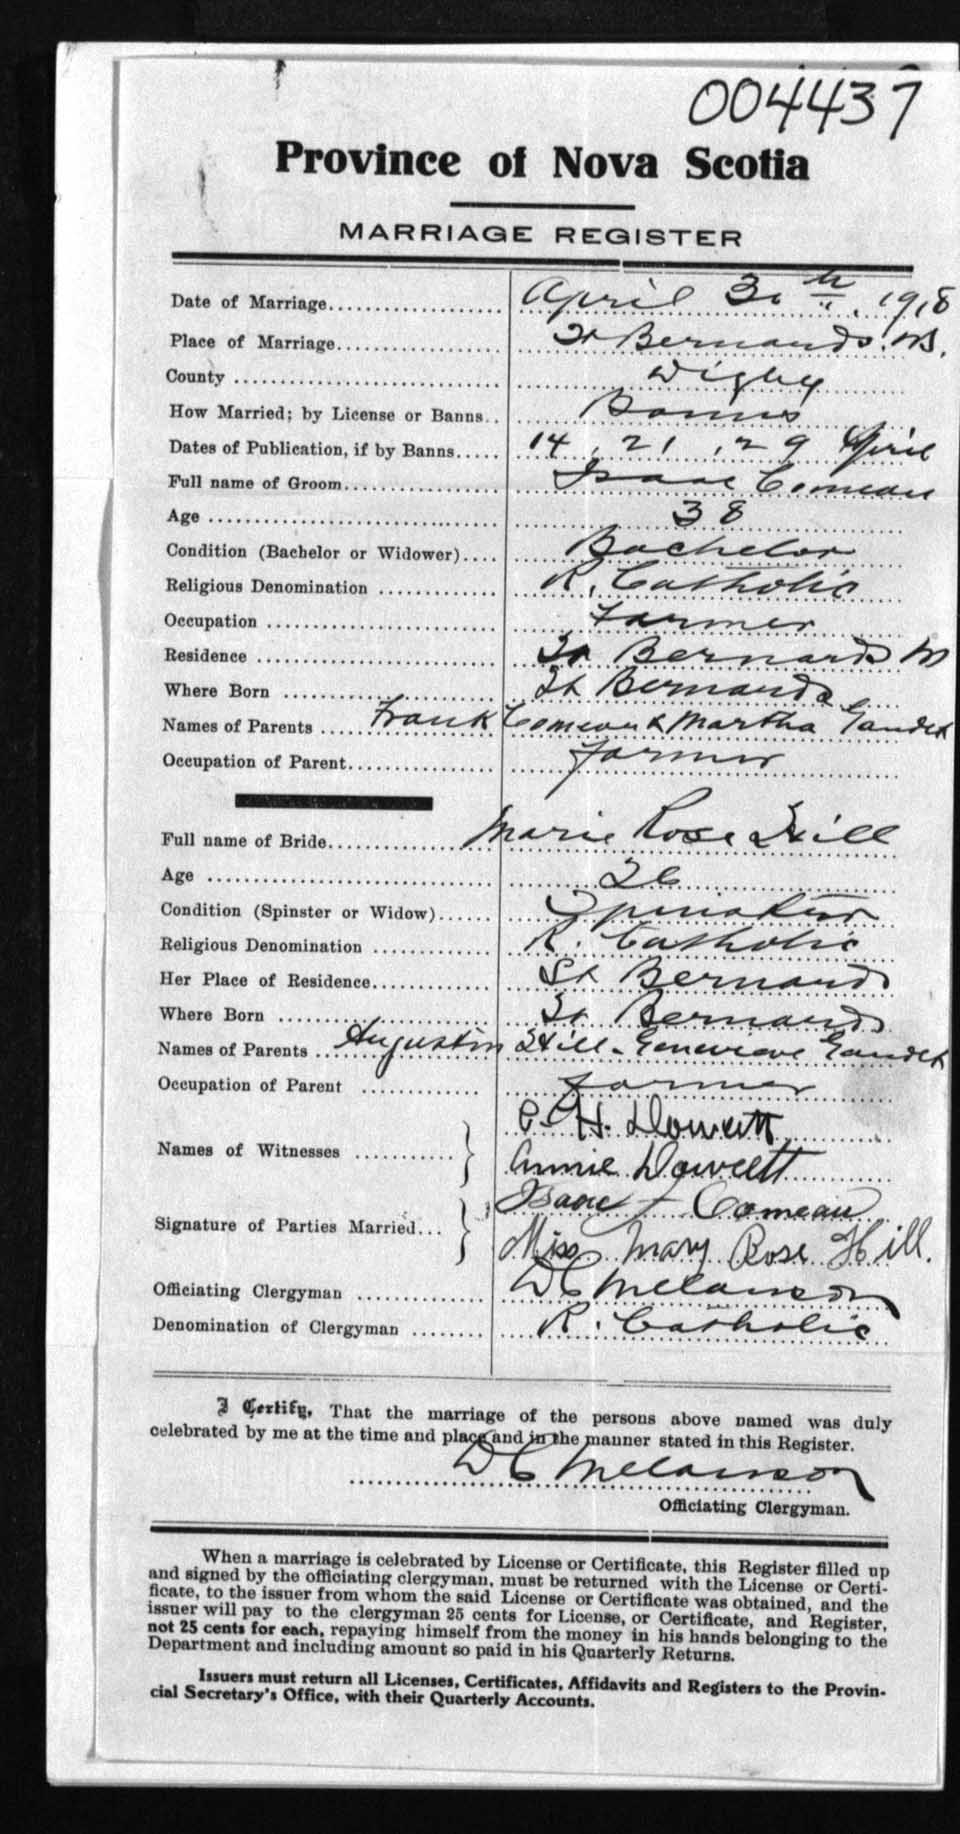 004437
Province of Nova Scotia
MARRIAGE REGISTER
Date of Marriage April 30th 1918
Place of Marriage St Bernards
County Digby
How Married; by License or Banns Banns
Dates of Publication, if by Banns 14, 21, 29 April
Full name of Groom Isaac Comeau
Age 38
Condition (Bachelor or Widower) Bachelor
Religious Denomination R. Catholic
Occupation Farmer
Residence St Bernards
Where Born St Bernards
Names of Parents Frank Comeau & Martha Gaudet
Occupation of Parent farmer
Full name of Bride Marie Rose Hill
Age 26
Condition (Spinster or Widow) Spinster
Religious Denomination R. Catholic
Her Place of Residence St Bernards
Where Born St Bernards
Names of Parents Augustin Hill - Genevieve Gaudet
Occupation of Parent farmer
Names of Witnesses H. Dowcett
Annie Dowcett
Signature of Parties Married Isaac Comeau
Miss Mary Rose Hill.
Officiating Clergyman DC Melanson
Denomination of Clergyman R. Catholic
I Certify, That the marriage of the persons above named was duly
celebrated by me at the time and place and in the manner stated in this Register.
DC Melanson
Officiating Clergyman.
When a marriage is celebrated by License or Certificate, this Register filled up
and signed by the officiating clergyman, must be returned with the License or Certi-
ficate, to the issuer from whom the said License or Certificate was obtained, and the
issuer will pay to the clergyman 25 cents for License, or Certificate, and Register,
not 25 cents for each, repaying himself from the money in his hands belonging to the
Department and including amount so paid in his Quarterly Returns.
Issuers must return all Licenses, Certificates, Affidavits and Registers to the Provin-
cial Secretary's Office, with their Quarterly Accounts.